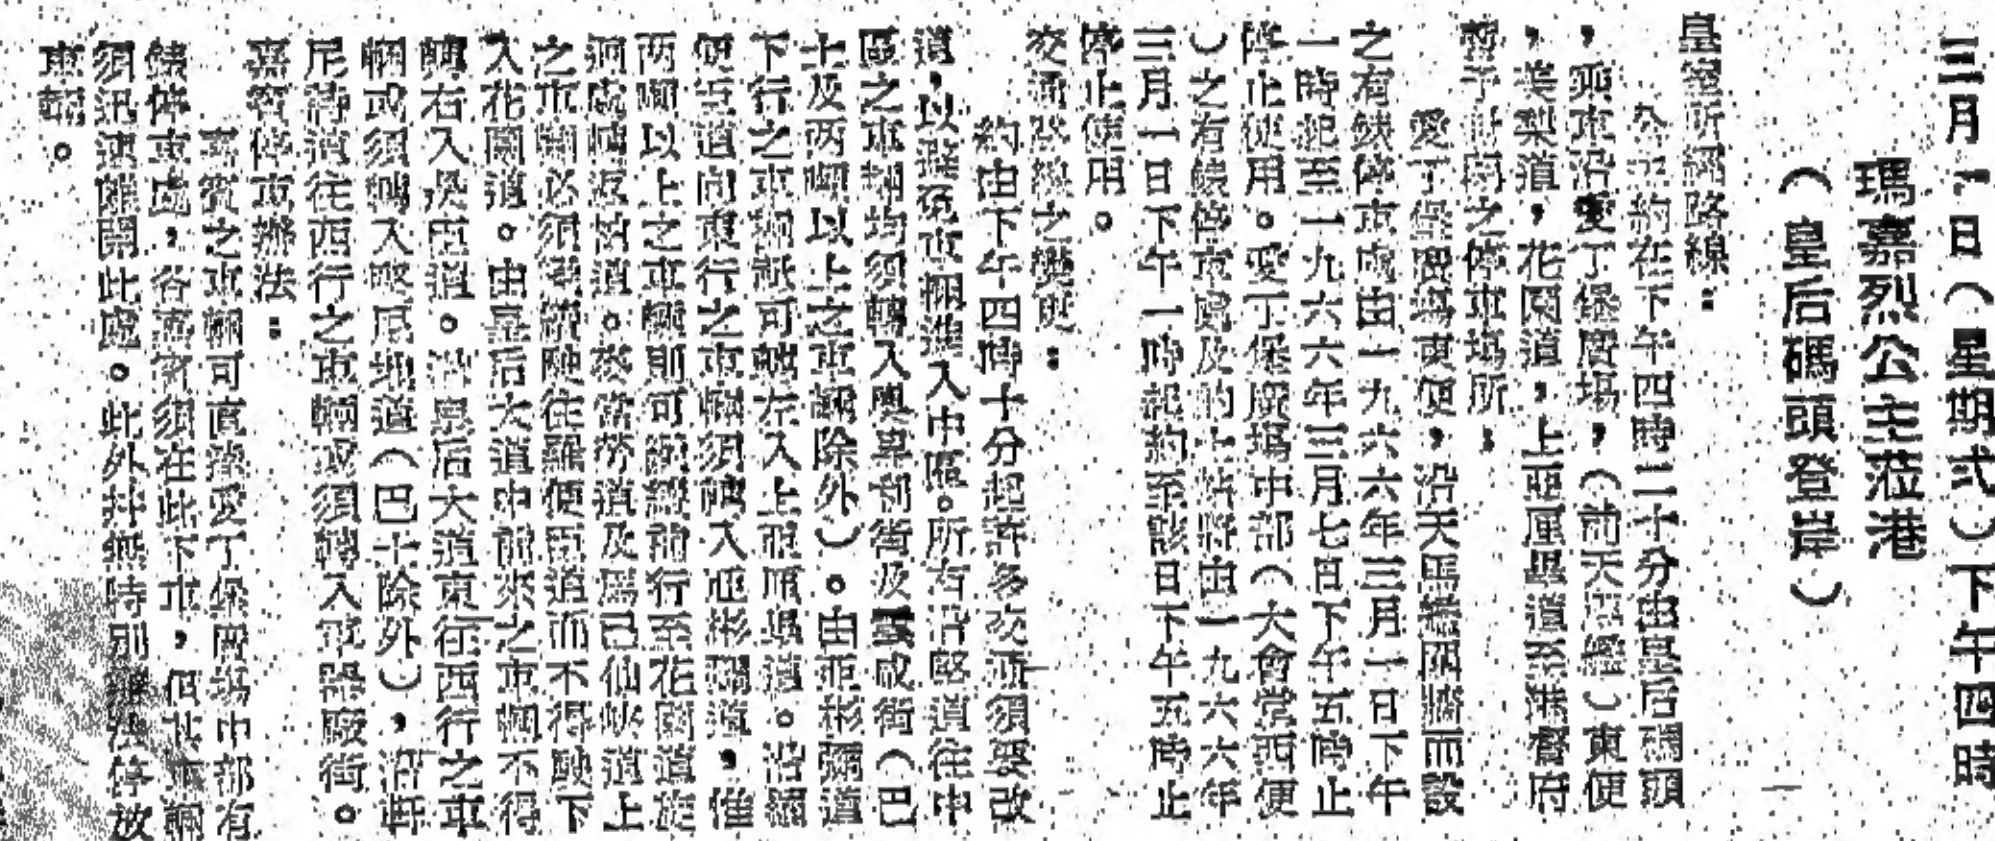 三月一日（星期弍）下午四時
瑪嘉烈公主蒞港
（皇后碼頭登岸）
皇室所經路線：
公主約在下午四時二十分由皇后碼頭
，乘車沿愛丁保廣場，（前天星碼）東便
，美梨道，花園道，上亞厘畢道至港督府
暫予封閉之停車塲所：
愛丁保廣塲東便，沿天馬艦兩牆而設
之有錶停車處由一九六六年三月一日下午
一時起至一九六六年三月七日下午五時止
停止使用。愛丁保廣塲中部（大會堂西便
）之有錶停車處及的士站將由一九六六年
三月一日下午一時起約至該日下午五時止
停止使用。
交通路線之變更：
約由下午四時十分起許多交通須要改
道，以避免車輛進入中區。所有沿堅道往中
區之車輛均須轉入奧卑利街及雲咸街（巴
士及两噸以上之車輛除外）。由亞彬彌道
下行之車輛祇可轉左入上亞厘畢道。沿羅
便臣道向東行之車輛須轉入亞彬彌道，惟
两噸以上之車輛則可繼續前行至花園道旋
迴處轉返柏道。麥當勞道及馬己仙峽道上
之車輛必須繼續駛往羅便臣道而不得駛下
入花園道。由皇后大道中前來之車輛不得
轉右入炮臣道。沿皇后大道東往西行之車
輛或須轉入晏厄地道（巴士除外），沿軒
尼詩道往西行之車輛或須轉入軍器廠街。
嘉賓停車辦法：
嘉賓之車輛可直達愛丁保廣塲中部有
錶停車處，各嘉賓須在此下車，但其車輛
須迅速離開此處。此外並無特別辦法停放
車輛。